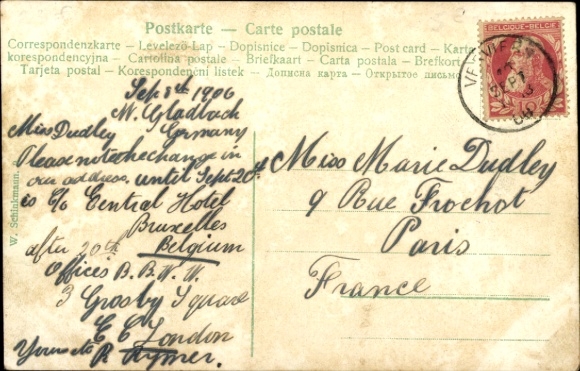 Postkarte — Carte postale
Correspondenzkarte — Levelező-Lap — Dopisnice — Dopisnica — Post card — Karta
korespondencyjna — Cartolina postale — Briefkaart — Carta postala — Brefkort
Tarjeta postal — Korespondenční listek — Дописна карта — Открытое письмо
BELGIQUE-BELGIË
VERVIERS
Sept 8th 1906
M. Gladbach
Germany
Miss Dudley
Please note the change in
our address. until Sept. 20th
is c/o Central Hotel
Bruxelles
Belgium
after 20th
Offices B. B. W. W.
3 Grosby Square
E C London
Yours etc R Aymer.
Miss Marie Dudley
9 Rue Frochot
Paris
France
W. Schinkmann.